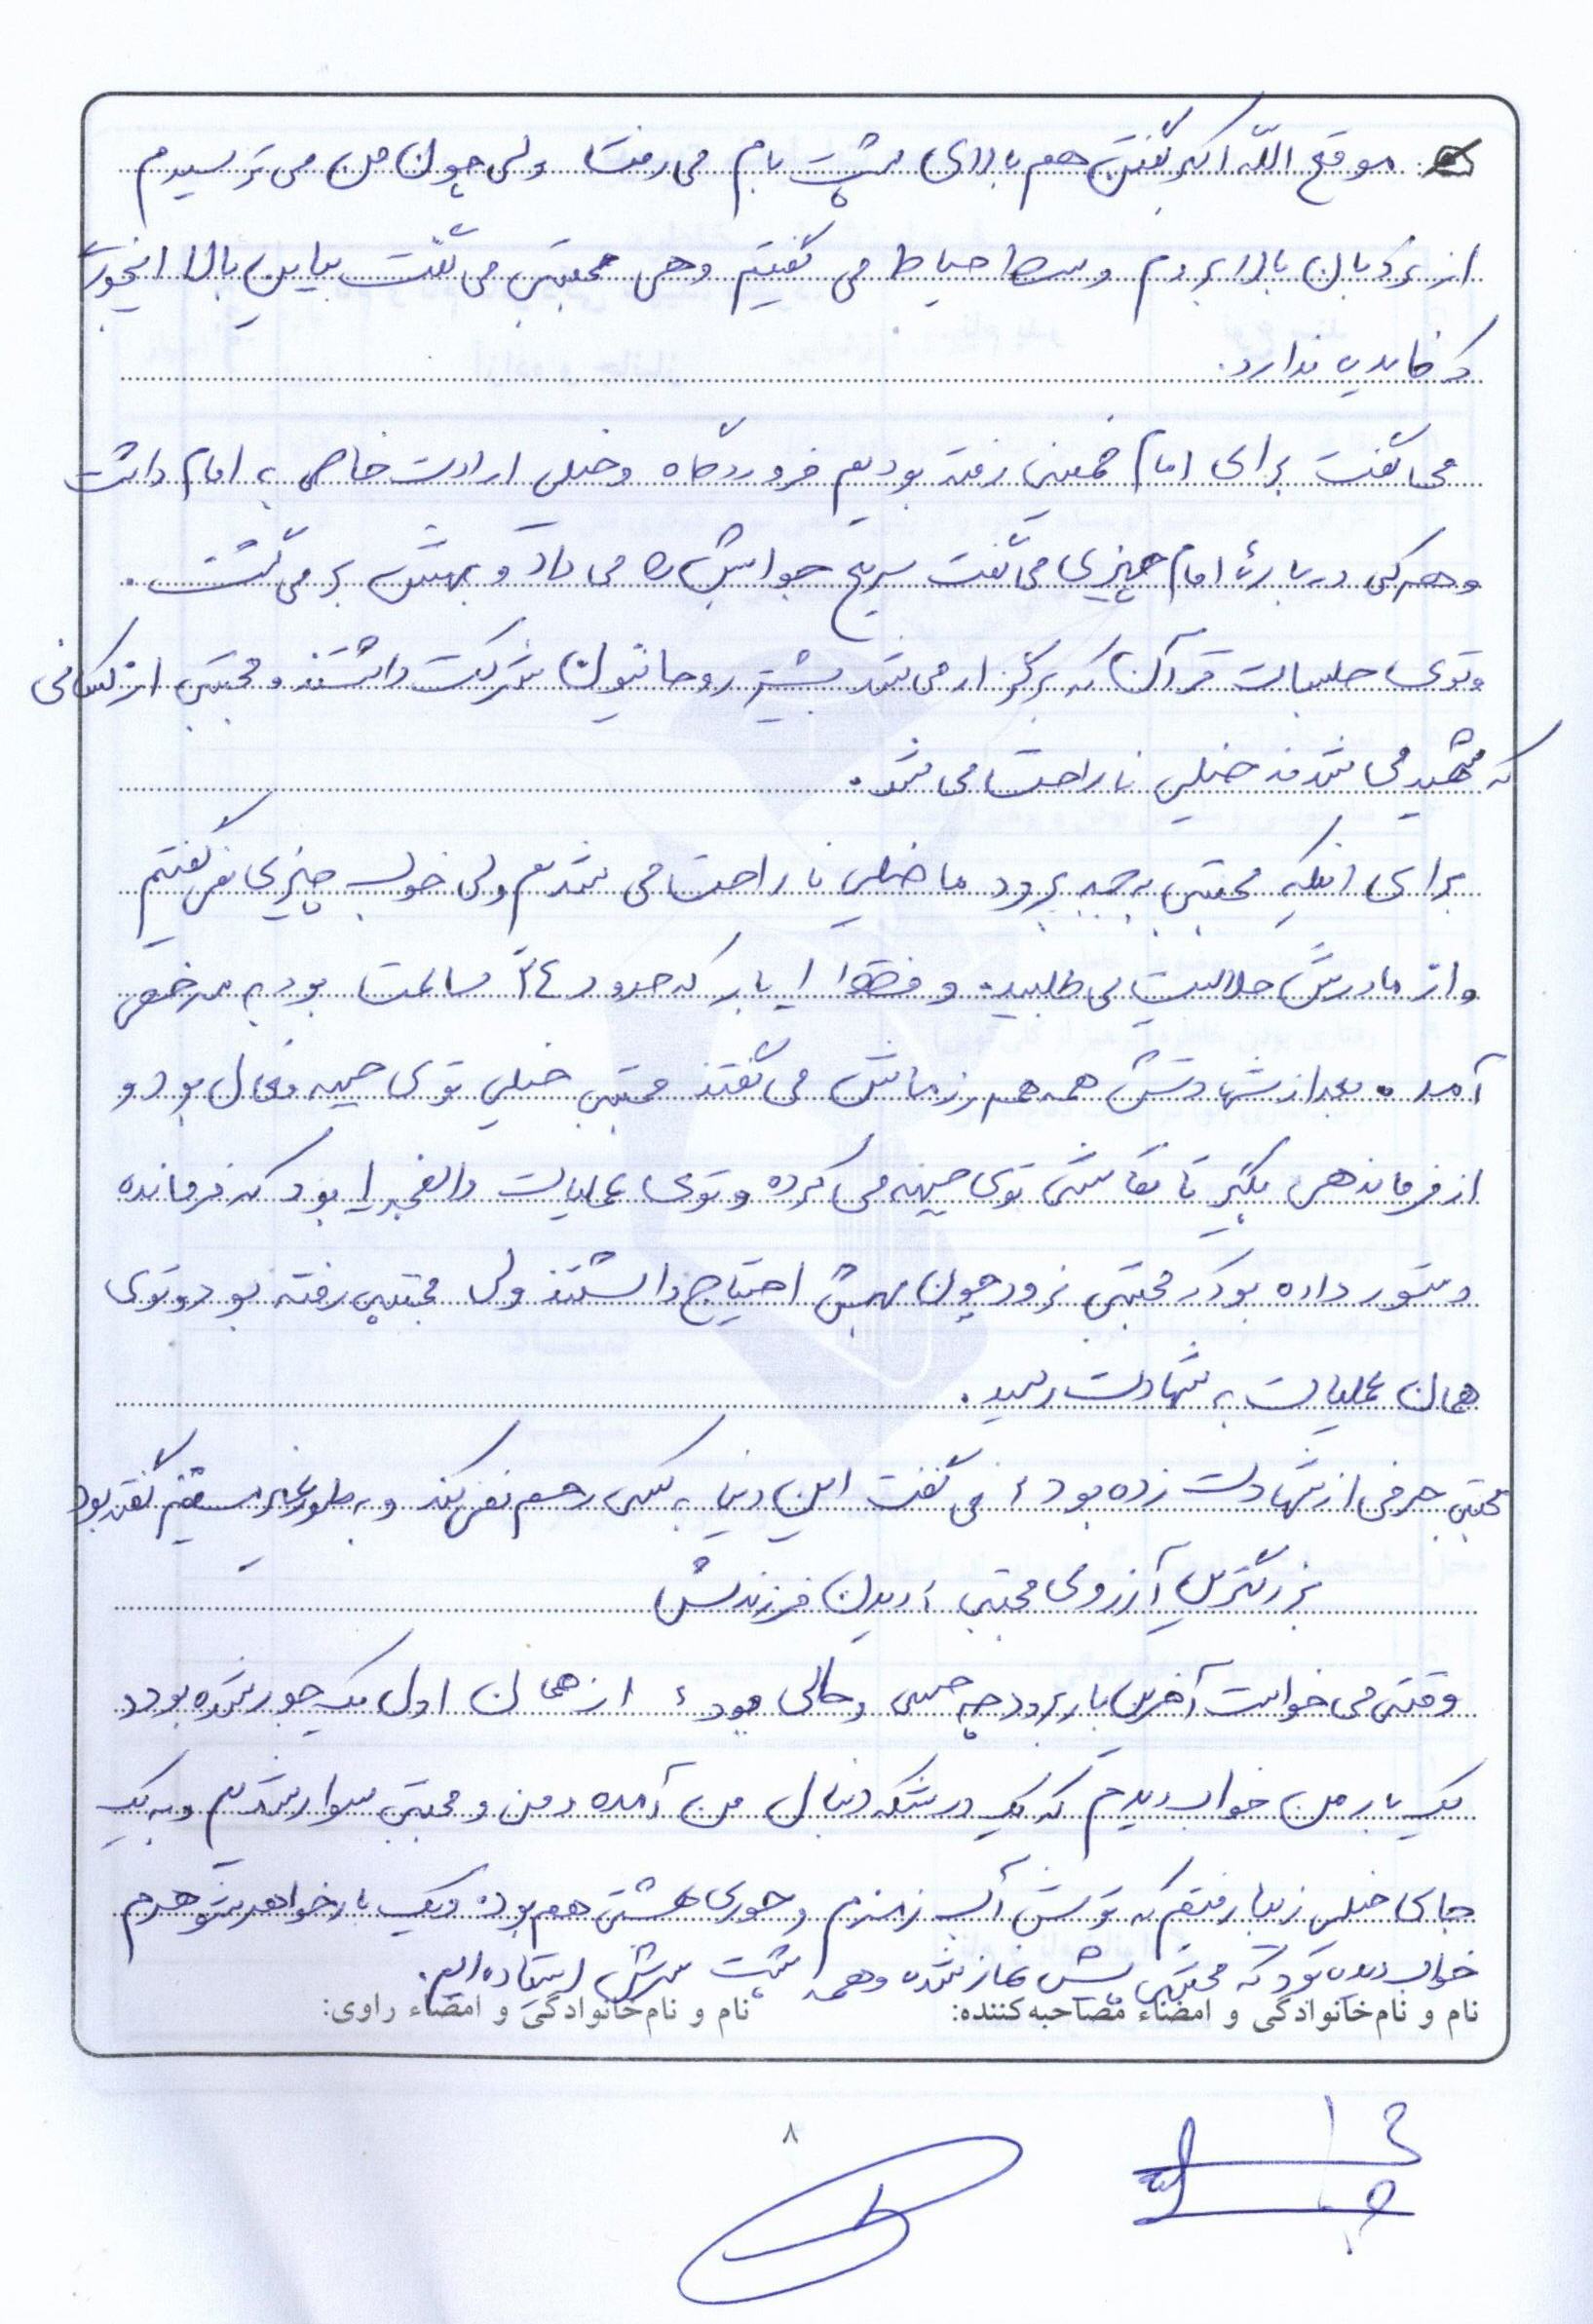 موقع اللّه اکبر گفتن هم بالای پشت بام می رفت ولی چون من می ترسیدم
از نردبان بالا بروم وسط حیاط می گفتیم و هی مجتبی می گفت بیاین بالا اینجوری
که فایده ندارد.
می گفت برای امام خمینی رفته بودیم فرودگاه و خیلی ارادت خاصی به امام داشت
و هر کی دربارهٔ امام چیزی می گفت سریع جوابش را می داد و بهش بر می گشت.
و توی جلسات قرآن که برگزار می شد بیشتر روحانیون شرکت داشتند و مجتبی از کسانی
که شهید می شدند خیلی ناراحت می شد.
برای اینکه مجتبی به جبهه برود ما خیلی ناراحت می شدیم ولی خوب چیزی نمی گفتیم
و از مادرش حلالیت می طلبید. و فقط ۱ بار که حدود ۲۴ ساعت بود به مرخصی
آمد. بعد از شهادتش همه هم رزمانش می گفتند مجتبی خیلی توی جبهه فعال بود و
از فرماندهی بگیر تا نقاشی توی جبهه می کرده و توی عملیات والفجر ۱ بود که فرمانده
دستور داده بود که مجتبی نرود چون بهش احتیاج داشتند ولی مجتبی رفته بود و توی
همان عملیات به شهادت رسید.
مجتبی حرفی از شهادت زده بود، می گفت این دنیا به کسی رحم نمی کند و به طور غیر مستقیم گفته بود
بزرگترین آرزوی مجتبی، دیدن فرزندش
وقتی می خواست آخرین بار برود چه حسی و حالی بود، از همان اول یک جور شده بود
یک بار من خواب دیدم که یک درشکه دنبال من آمده و من و مجتبی سوار شدیم و به یک
جای خیلی زیبا رفتیم که توش آب زمزم و حوری بهشتی هم بود. و یک بار خواهر شوهرم
خواب دیده بود که مجتبی پیش نماز شده و همه پشت سرش ایستاده ایم.
نام و نام‌خانوادگی و امضاء مصاحبه‌کننده: نام و نام‌خانوادگی و امضاء راوی:
۸